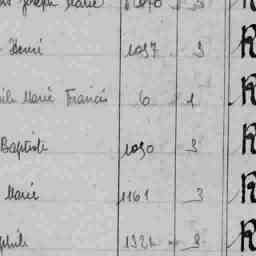 Joseph Marie 3 R
Henri 1037 3 R
Marie Francis 6 1 R
Baptiste 1030 3 R
Marie 1161 3 R
phile 1321 8 R